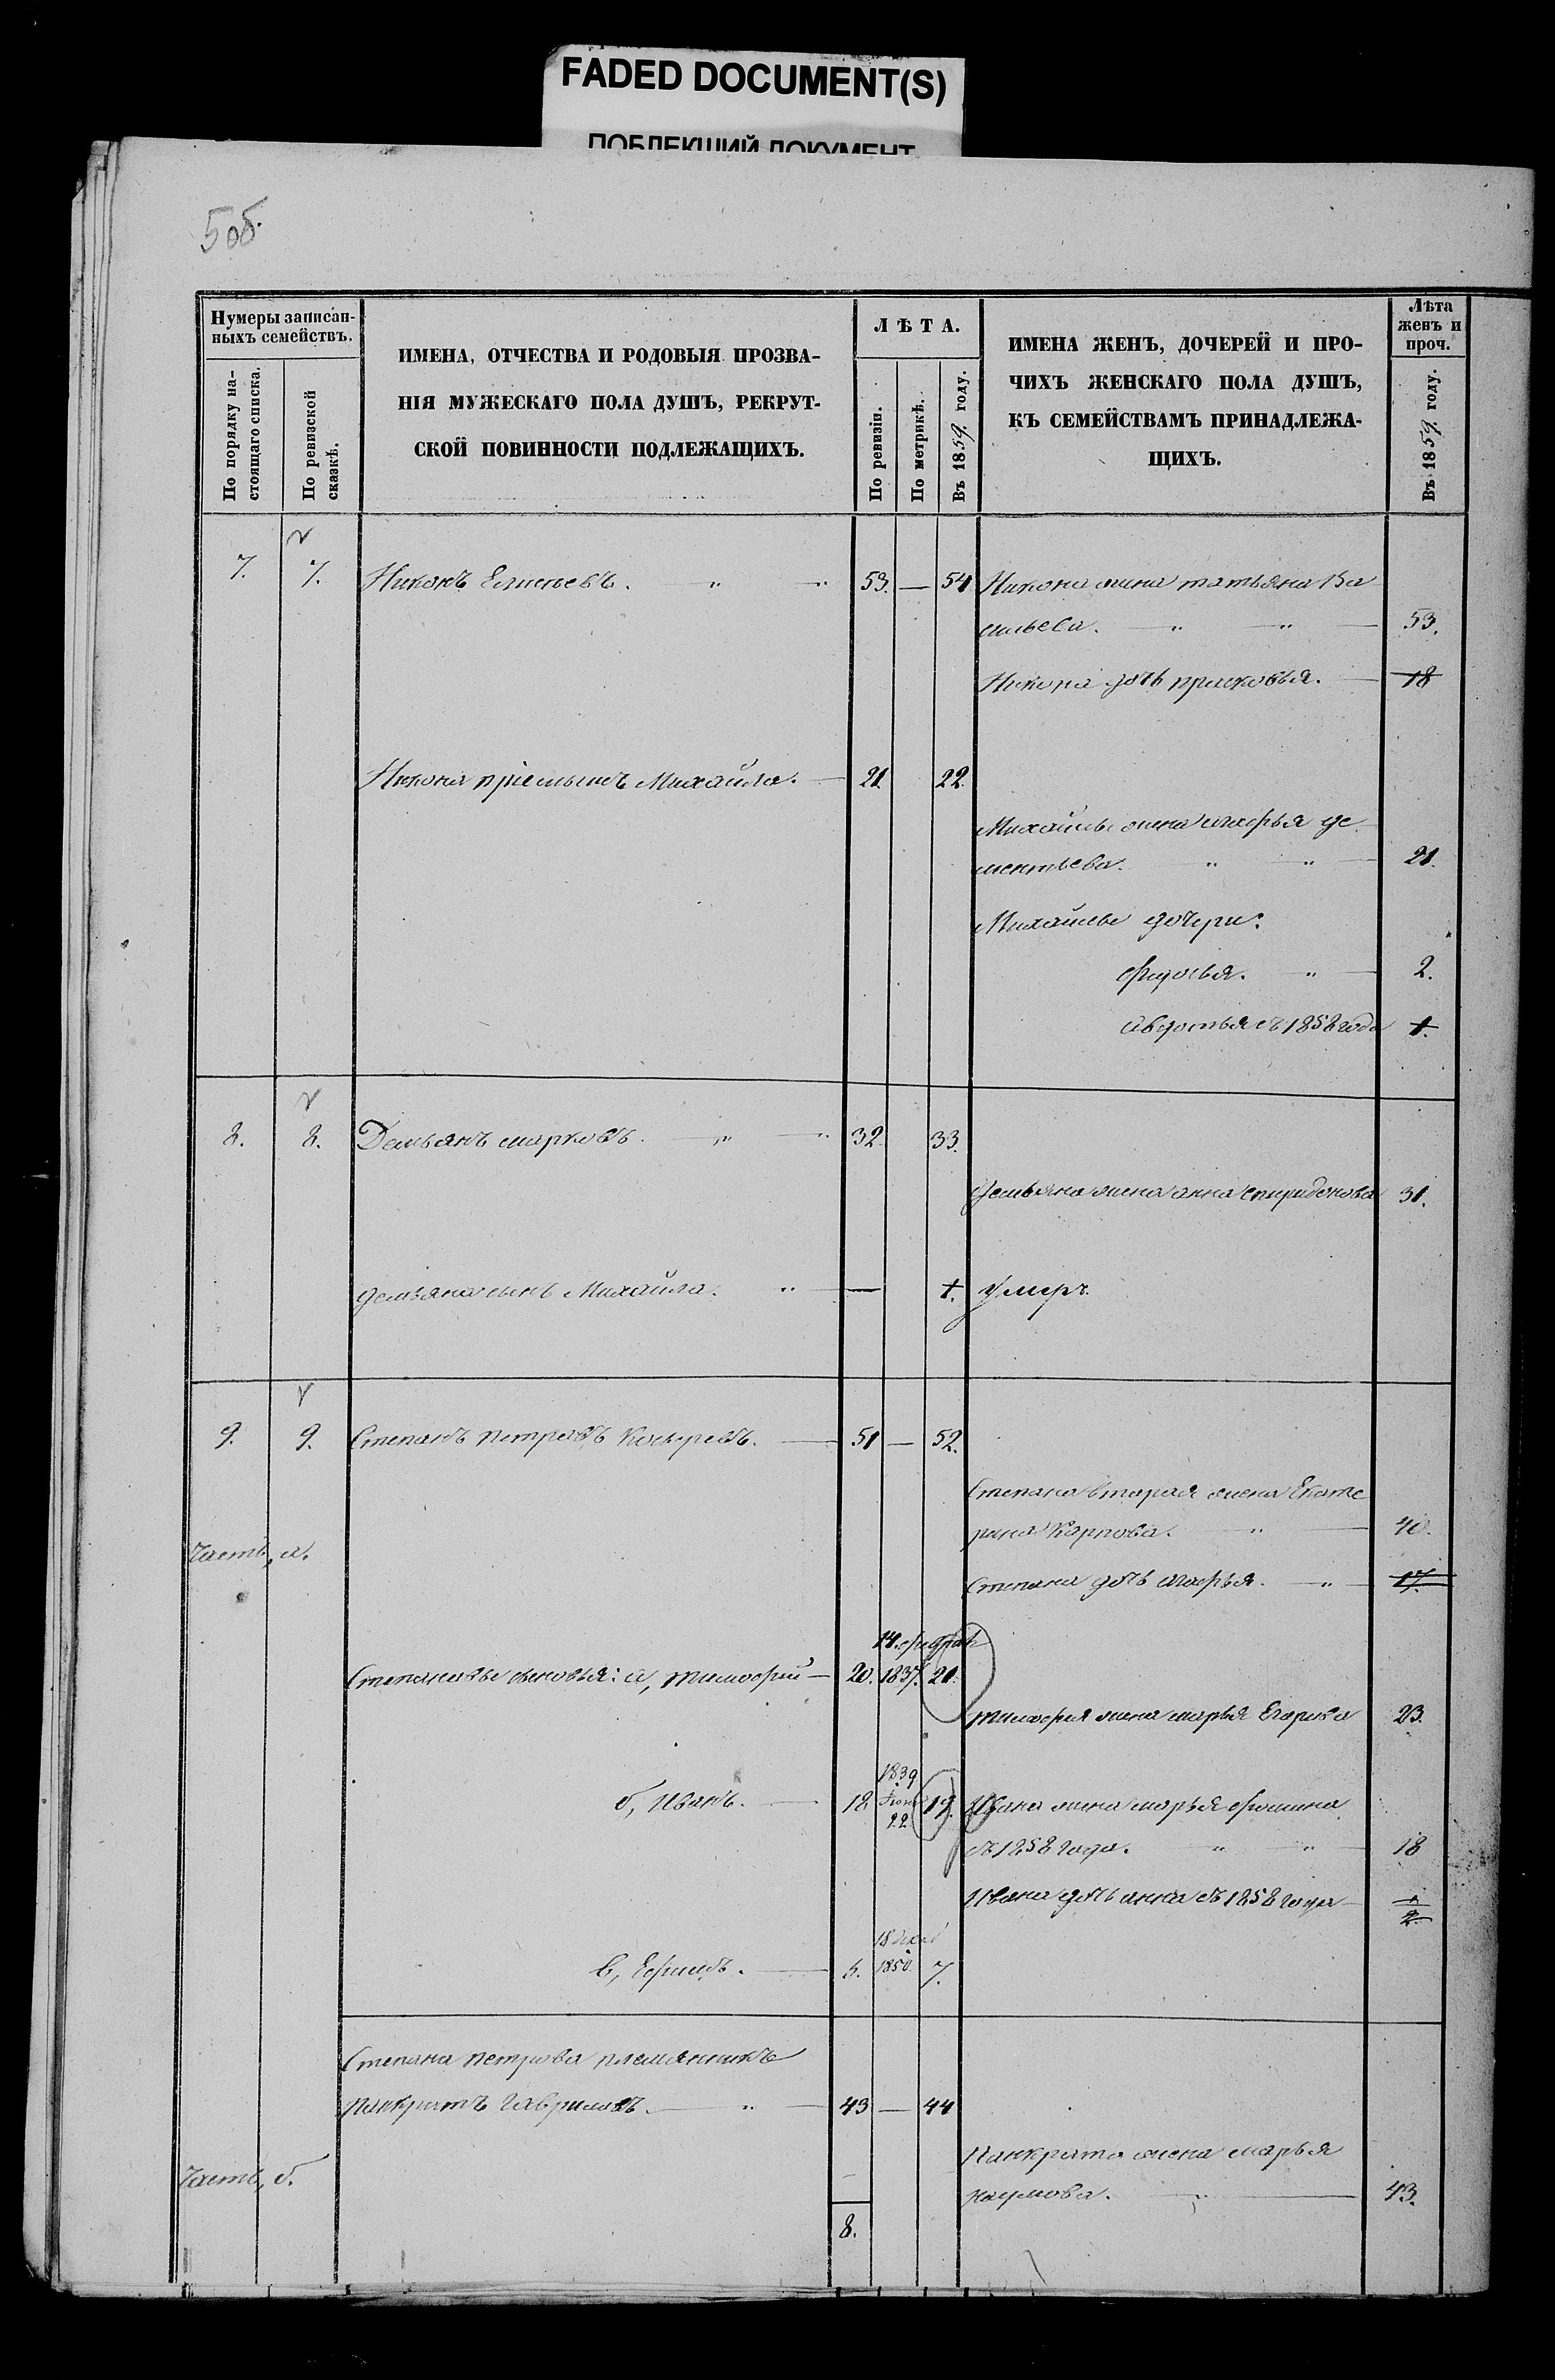 FADED DOCUMENT(S)
ПОБЛЕКШИЙ ДОКУМЕНТ
5 об.
Нумеры записан-
ныхъ семействъ.
По порядку на-
стоящаго списка.
По ревизской
сказкѣ.
ИМЕНА, ОТЧЕСТВА И РОДОВЫЯ ПРОЗВА-
НІЯ МУЖЕСКАГО ПОЛА ДУШЪ, РЕКРУТ-
СКОЙ ПОВИННОСТИ ПОДЛЕЖАЩИХЪ.
ЛѢТА.
По ревизіи.
По метрикѣ.
Въ 1859. году.
ИМЕНА ЖЕНЪ, ДОЧЕРЕЙ И ПРО-
ЧИХЪ ЖЕНСКАГО ПОЛА ДУШЪ,
КЪ СЕМЕЙСТВАМЪ ПРИНАДЛЕЖА-
ЩИХЪ.
Лѣта
женъ и
проч.
Въ 1859. году.
7. 7. Никонъ Елисѣевъ. " " 53. — 54 Никона жена татьяна Ва
сильева. " " 53.
Никона дочь прасковья. 18
Никона пріемышъ Михайла. 21. 22.
Михайлы жена агафья де
ментьева. " " 21.
Михайлы дочери:
федосья. " 2.
Авдотья съ 1858 года 1.
8. 8. Демьянъ марковъ. " " 32. 33.
Демьяна жена анна спиридонова 31.
демьяна сынъ Михайла. " — 1. умеръ.
9. 9. Степанъ петровъ 51 — 52.
Степана вторая жена Екате
рина Карпова. " 40.
Часть, а.
Степана дочь агафья. " 17.
14. феврал
Степановы сыновья: а, тимофей — 20. 1837. 21.
тимофея жена марья Егорова 23.
1839
б, Иванъ. 18 Іюня 19. Ивана жена марья фомина
22.
съ 1858 года. " " 18
Ивана дочь анна съ 1858 года
18 декаб
в, Ефимъ. 1850. 7.
Степана петрова племянникъ
панкратъ гавриловъ. " 43 — 44
Панкрата жена марья
Часть, б.
наумова. " 43.
8.